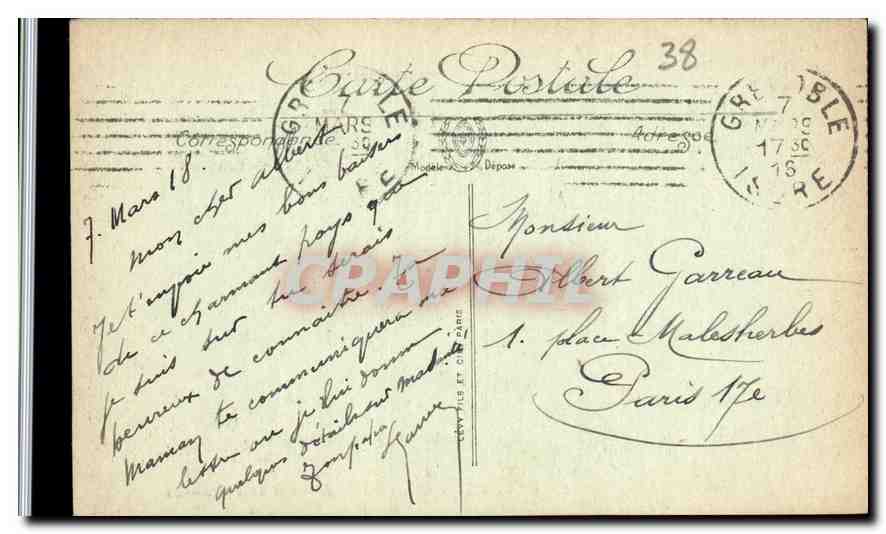 38
Carte Postale
Correspondance
Adresse
Modèle Déposé
GRENOBLE
7
MARS
ISERE
GRENOBLE
7
MARS
17 30
18
ISERE
7. Mars 18.
Mon cher Albert
Je t'envoie mes bons baisers
de ce charmant pays que
je suis sur tu serais
heureux de connaitre. Ta
Maman te communiquera ma
lettre ou je lui donne
quelques détails sur
Ton papa
Monsieur
Albert Garreau
1. place Malesherbes
Paris 17e
LÉVY FILS ET CIE PARIS
CPARHIL